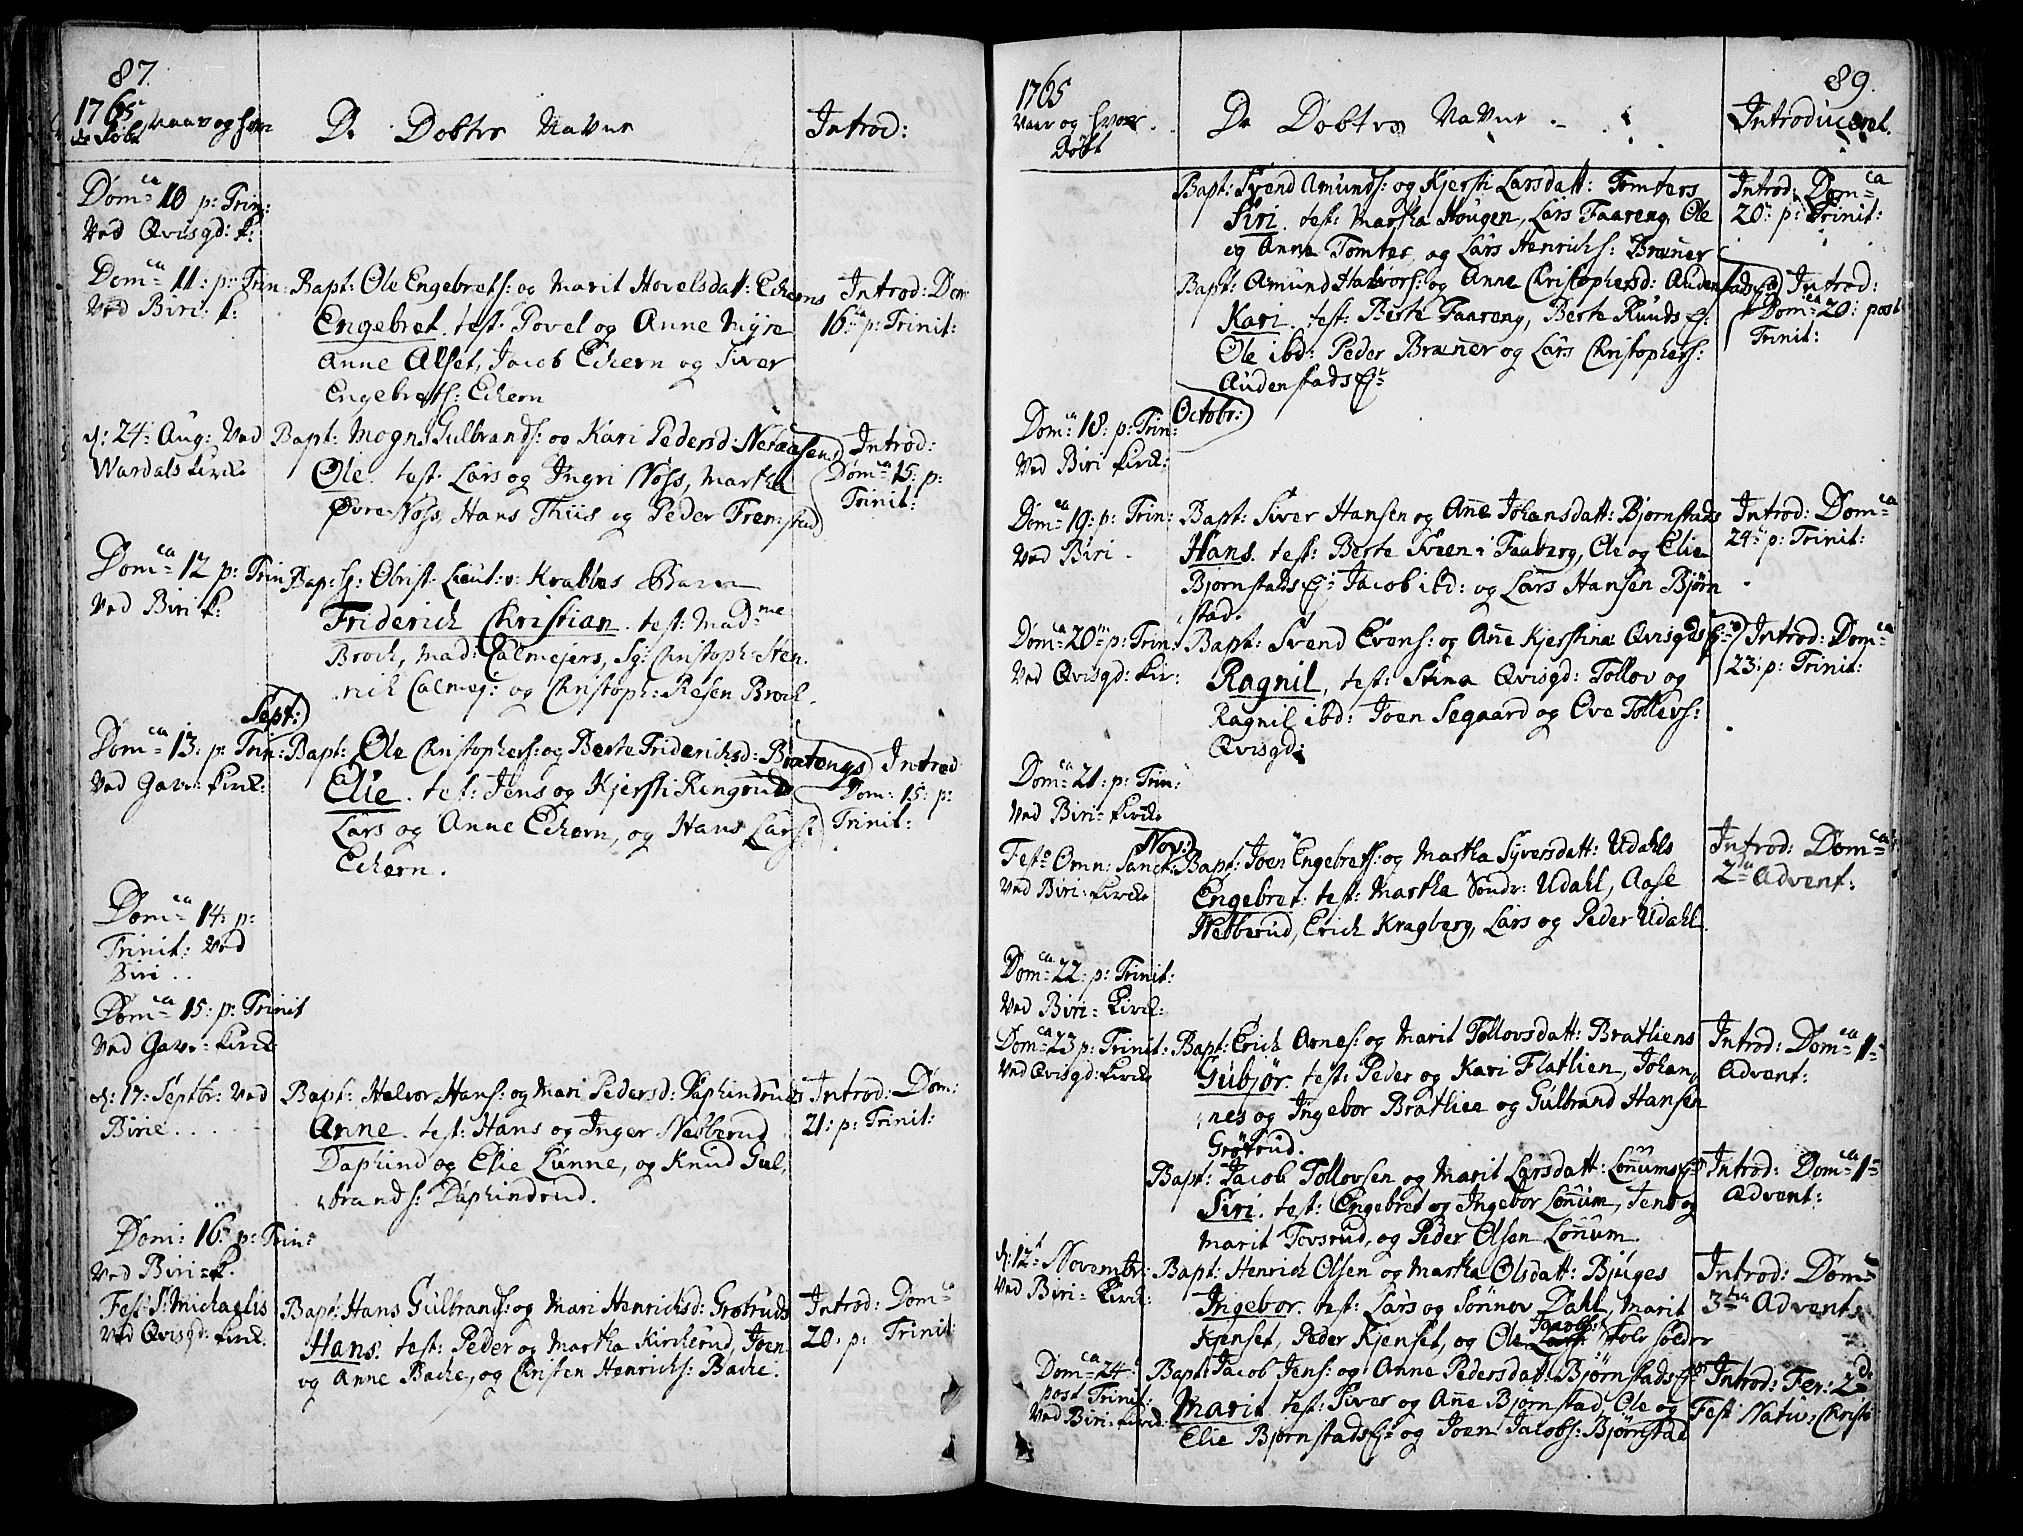 87.
1765
Naar og hvor
er Døbt
De Døbtes Navne
Introd:
Dom:ca 10 p: Trin:
Ved Qvisgd: k:
Dom:ca 11: p: Trin:
Ved Biri: k:
Bapt: Ole Engebrets: og Marit Hovelsdatt: Echerns
Engebret. test: Povel og Anne Myre
Anne Alset, Jacob Echern og Siver
Engebrets: Echern
Introd: Dom
16:ca p: Trinit:
d: 24: Aug: Ved
Wardals kirche
Bapt: Mogns Gulbrands: og Kari Pedersd: Neraasens
Ole. test: Lars og Ingri Nøss, Martha
Øvre-Nøss, Hans Thiis og Peder Fremstad
Introd:
Dom:ca 15: p:
Trinit:
Dom:ca 12 p: Trin
Ved Biri k:
Bap: Hr: Obrist-Lieut: v: Krabbes Barn
Friderich Christian. test: Mad:me
Broch, Mad: Calmejers, Sr: Christoph: Hen-
rich Calmej: og Christoph: Resen Broch.
Sept:
Dom:ca 13: p: Trin:
Ved Gave: kirch:
Bapt: Ole Christophers: og Berte Friderichsd: Bratengs
Elie. test: Jens og Kjersti Ringrud
Lars og Anne Echern, og Hans Lars:
Echern.
Introd
Dom: 15: p:
Trinit:
Dom:ca 14: p:
Trinit: Ved
Biri . .
Dom:ca 15: p: Trinit
Ved Gave: kirch
d: 17: Septbr: Ved
Birie . . .
Bapt: Halvor Hans: og Mari Pedersd: Daphindruds
Anne. test: Hans og Inger Nøsberud
Daphind og Elie Lunne, og Knud Gul,
brands: Daphindrud.
Introd: Dom:
21: p: Trinit:
Dom: 16: p: Trin:
Ved Biri: k.
Fest: S: Michaelis
Ved Qvisgd: kirch.
Bapt: Hans Gulbrands: og Mari Henrichsd: Grøtruds
Hans. test: Peder og Martha Kircherud, Joen
og Anne Bache, og Christen Henrichs: Bache.
Introd: Dom:ca
20: p: Trinit
1765
Naar og hvor
Døbt
De Døbtes Navne
89.
Introduceret.
Bapt: Svend Amunds: og Kjersti Larsdatt: Tomters
Siri. test: Martha Hougen, Lars Faareng, Ole
og Anne Tomter, og Lars Henrichs: Bræner
Introd: Dom:ca
20: p: Trinit:
Bapt: Amund Halvors: og Anne Christophersd: Audenstads
Kari. test: Berte Faareng, Berte Ruuds
Ole ibd: Peder Bræner og Lars Christophers:
Audenstads
Introd:
Dom:ca 20: post
Trinit:
Octobr:
Dom:ca 18: p: Trin:
Ved Biri kirch:
Dom:ca 19: p: Trin:
Ved Biri .
Bapt: Siver Hansen og Añe Johansdatt: Bjørnstads
Hans. test: Berte Sveen i Faaberg, Ole og Elie
Bjørnstads, Jacob ibd: og Lars Hansen Bjørn
stad.
Introd: Dom:ca
24: p: Trinit:
Dom:ca 20: p: Trin:
Ved Qvisgd: kir:
Bapt: Svend Evens: og Añe Kjerstina Qvisgds
Ragnil, test: Stina Qvisgd: Tollov og
Ragnil ibd: Joen Segaard og Ove Tollevs:
Qvisgd:
Introd: Dom:ca
23: p: Trinit:
Dom:ca 21: p: Trin:
Ved Biri: kirche
Nov:
Festo Omn: Sanct:
Ved Biri: kirche
Bapt: Joen Engebrets: og Martha Syversdatt: Udahls
Engebret: test: Martha Søndr: Udahl, Aase
Nøsberud, Erich Kragberg, Lars og Peder Udahl.
Introd: Dom:ca
2:da Advent:
Dom:ca 22: p: Trinit:
Ved Biri: kirch:
Dom:ca 23 p: Trinit:
Ved Qvisgd: kirche
Bapt: Erich Arnes: og Marit Tollovsdatt: Bratliens
Gubjør. test: Peder og Kari Flatlien, Johan,
nes og Ingebor Bratlien og Gulbrand Hansen
Grøtrud.
Introd: Dom:ca 1:
Advent:
Bapt: Jacob Tollovsen og Marit Larsdatt: Loñums
Siri. test: Engebret og Ingebor Loñum, Jens og
Marit Tovsrud, og Peder Olsen Loñum.
Introd: Dom:ca 1:
Advent:
d: 12t November:
Ved Biri: kirch:
Bapt: Henrich Olsen og Martha Olsdatt: Bjuges
Ingebor. test: Lars og Sønnov Dahl, Marit
Kjenset, Peder Kjenset, og Ole Jacobs:
Introd: Dom:
3:tia Advent:
Dom:ca 24:
post Trinit:
Ved Biri: kirch:
Bapt: Jacob Jens: og Anne Pedersdat: Bjørnstads
Marit test: Siver og Añe Bjørnstad, Ole og
Elie Bjørnstads og Joen Jacobs: Bjørnstad
Introd: Fer: 2d
Fest: Nativ: Christi